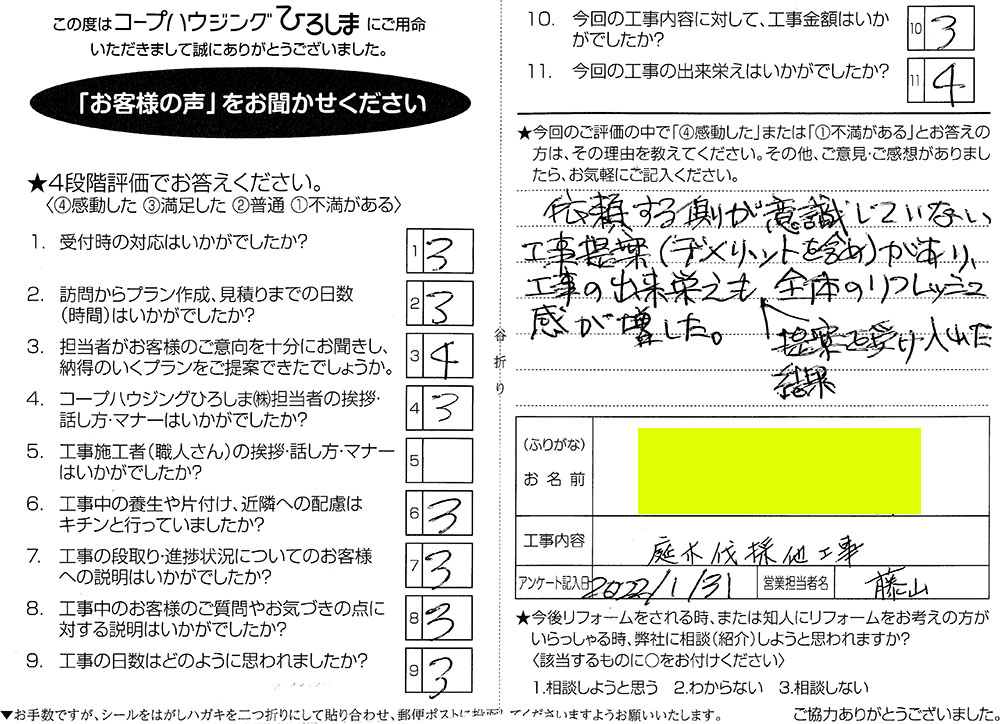 この度はコープハウジングひろしまにご用命
いただきまして誠にありがとうございました。
「お客様の声」をお聞かせください
★4段階評価でお答えください。
〈④感動した ③満足した ②普通 ①不満がある〉
1. 受付時の対応はいかがでしたか?
1 3
2. 訪問からプラン作成、見積りまでの日数
（時間）はいかがでしたか?
2 3
3. 担当者がお客様のご意向を十分にお聞きし、
納得のいくプランをご提案できたでしょうか。
3 4
4. コープハウジングひろしま㈱担当者の挨拶・
話し方・マナーはいかがでしたか?
4 3
5. 工事施工者（職人さん）の挨拶・話し方・マナー
はいかがでしたか?
5
6. 工事中の養生や片付け、近隣への配慮は
キチンと行っていましたか?
6 3
7. 工事の段取り・進捗状況についてのお客様
への説明はいかがでしたか?
7 3
8. 工事中のお客様のご質問やお気づきの点に
対する説明はいかがでしたか?
8 3
9. 工事の日数はどのように思われましたか?
9 3
▼お手数ですが、シールをはがしハガキを二つ折りにして貼り合わせ、郵便ポストに投函してくださいますようお願いいたします。
谷折り
10. 今回の工事内容に対して、工事金額はいか
がでしたか?
10 3
11. 今回の工事の出来栄えはいかがでしたか?
11 4
★今回のご評価の中で「④感動した」または「①不満がある」とお答えの
方は、その理由を教えてください。その他、ご意見・ご感想がありまし
たら、お気軽にご記入ください。
依頼する側が意識していない
工事提案（デメリットを含め）があり、
工事の出来栄えも 全体のリフレッシュ
感が増した。
提案を受け入れた
結果
（ふりがな）
お名前
工事内容
庭木伐採他工事
アンケート記入日 2022/1/31 営業担当者名 藤山
★今後リフォームをされる時、または知人にリフォームをお考えの方が
いらっしゃる時、弊社に相談（紹介）しようと思われますか?
〈該当するものに○をお付けください〉
1.相談しようと思う 2.わからない 3.相談しない
ご協力ありがとうございました